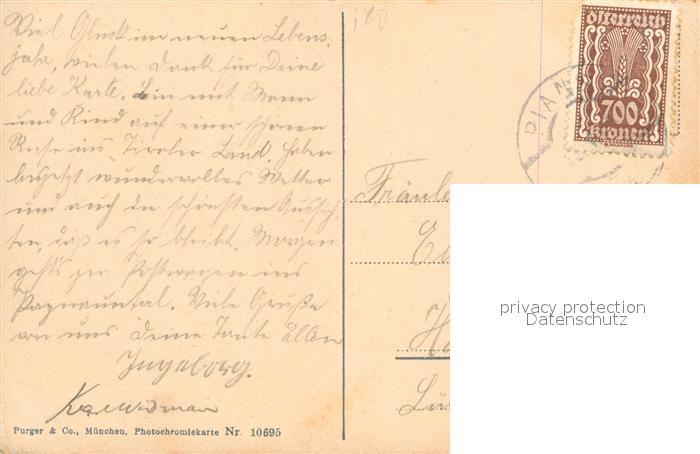 Viel Glück im neuen Lebens-
jahr, vielen Dank für Deine
liebe Karte. Bin mit Mann
und Kind auf einer schönen
Reise ins Tiroler Land. Haben
bis jetzt wundervolles Wetter
und auch die schönsten Aussich-
ten, daß es so bleibt. Morgen
geht's per Postwagen ins
Paznauntal. Viele Grüße
von uns Deine Tante Ellen
Ingeborg.
Purger & Co., München, Photochromiekarte Nr. 10695
Österreich
700
Kronen
PIANS
Fräulei
privacy protection
Datenschutz